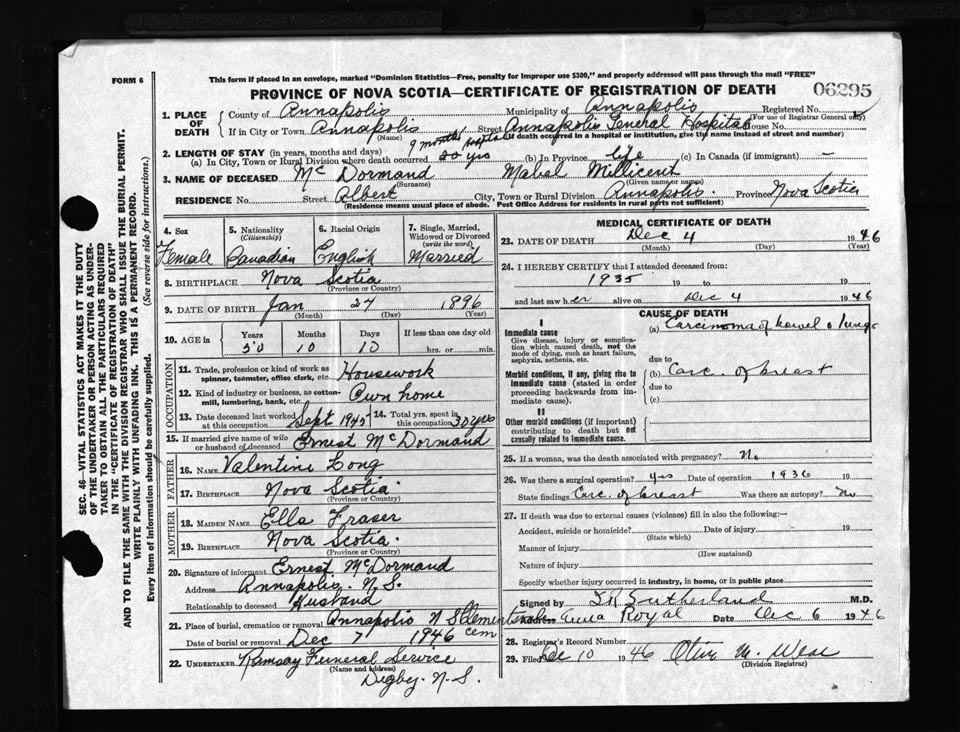 FORM 6
This form if placed in an envelope, marked "Dominion Statistics—Free, penalty for improper use $300," and properly addressed will pass through the mail "FREE"
PROVINCE OF NOVA SCOTIA—CERTIFICATE OF REGISTRATION OF DEATH
06295
1. PLACE OF DEATH
County of Annapolis Municipality of Annapolis Registered No.
(For use of Registrar General only)
If in City or Town Annapolis Street Annapolis General Hospital House No.
(Name) (If death occurred in a hospital or institution, give the name instead of street and number)
9 months hospital
2. LENGTH OF STAY (in years, months and days)
(a) In City, Town or Rural Division where death occurred 20 yrs (b) In Province life (c) In Canada (if immigrant) —
3. NAME OF DECEASED McDormand Mabel Millicent
(Surname) (Given name or names)
RESIDENCE No. Street Albert City, Town or Rural Division Annapolis. Province Nova Scotia
(Residence means usual place of abode. Post Office Address for residents in rural parts not sufficient)
4. Sex Female
5. Nationality (Citizenship) Canadian
6. Racial Origin English
7. Single, Married, Widowed or Divorced (write the word) Married
8. BIRTHPLACE Nova Scotia
(Province or Country)
9. DATE OF BIRTH Jan 24 1896
(Month) (Day) (Year)
10. AGE in Years Months Days If less than one day old
50 10 10 hrs. or min.
OCCUPATION
11. Trade, profession or kind of work as spinner, teamster, office clerk, etc. Housework
12. Kind of industry or business, as cotton-mill, lumbering, bank, etc. Own home
13. Date deceased last worked at this occupation Sept 1945
14. Total yrs. spent in this occupation 32 yrs
15. If married give name of wife or husband of deceased Ernest McDormand
FATHER
16. NAME Valentine Long
17. BIRTHPLACE Nova Scotia
(Province or Country)
MOTHER
18. MAIDEN NAME Ella Fraser
19. BIRTHPLACE Nova Scotia.
(Province or Country)
20. Signature of informant Ernest McDormand
Address Annapolis. N.S.
Relationship to deceased Husband
21. Place of burial, cremation or removal Annapolis N S Clements cem
Date of burial or removal Dec 7 1946
22. UNDERTAKER Ramsay Funeral Service
(Name and address)
Digby. N.S.
MEDICAL CERTIFICATE OF DEATH
23. DATE OF DEATH Dec 4 1946
(Month) (Day) (Year)
24. I HEREBY CERTIFY that I attended deceased from:
1935 19 to 19
and last saw her alive on Dec 4 1946
CAUSE OF DEATH
I
Immediate cause
Give disease, injury or complication which caused death, not the mode of dying, such as heart failure, asphyxia, asthenia, etc.
(a) Carcinoma of bowel & lungs
due to
Morbid conditions, if any, giving rise to immediate cause (stated in order proceeding backwards from immediate cause).
(b) Carc. of breast
due to
(c)
II
Other morbid conditions (if important) contributing to death but not causally related to immediate cause.
25. If a woman, was the death associated with pregnancy? No
26. Was there a surgical operation? yes Date of operation 1936 19
State findings Carc. of breast Was there an autopsy? No
27. If death was due to external causes (violence) fill in also the following:—
Accident, suicide or homicide? Date of injury 19
(State which)
Manner of injury
(How sustained)
Nature of injury
Specify whether injury occurred in industry, in home, or in public place
Signed by Sutherland M.D.
Address Anna Royal Date Dec 6 1946
28. Registrar's Record Number
29. Filed Dec 10 1946
(Division Registrar)
SEC. 46—VITAL STATISTICS ACT MAKES IT THE DUTY
OF THE UNDERTAKER OR PERSON ACTING AS UNDER-
TAKER TO OBTAIN ALL THE PARTICULARS REQUIRED
IN THE "CERTIFICATE OF REGISTRATION OF DEATH"
AND TO FILE THE SAME WITH THE DIVISION REGISTRAR WHO SHALL ISSUE THE BURIAL PERMIT.
WRITE PLAINLY WITH UNFADING INK. THIS IS A PERMANENT RECORD.
Every item of information should be carefully supplied. (See reverse side for instructions.)